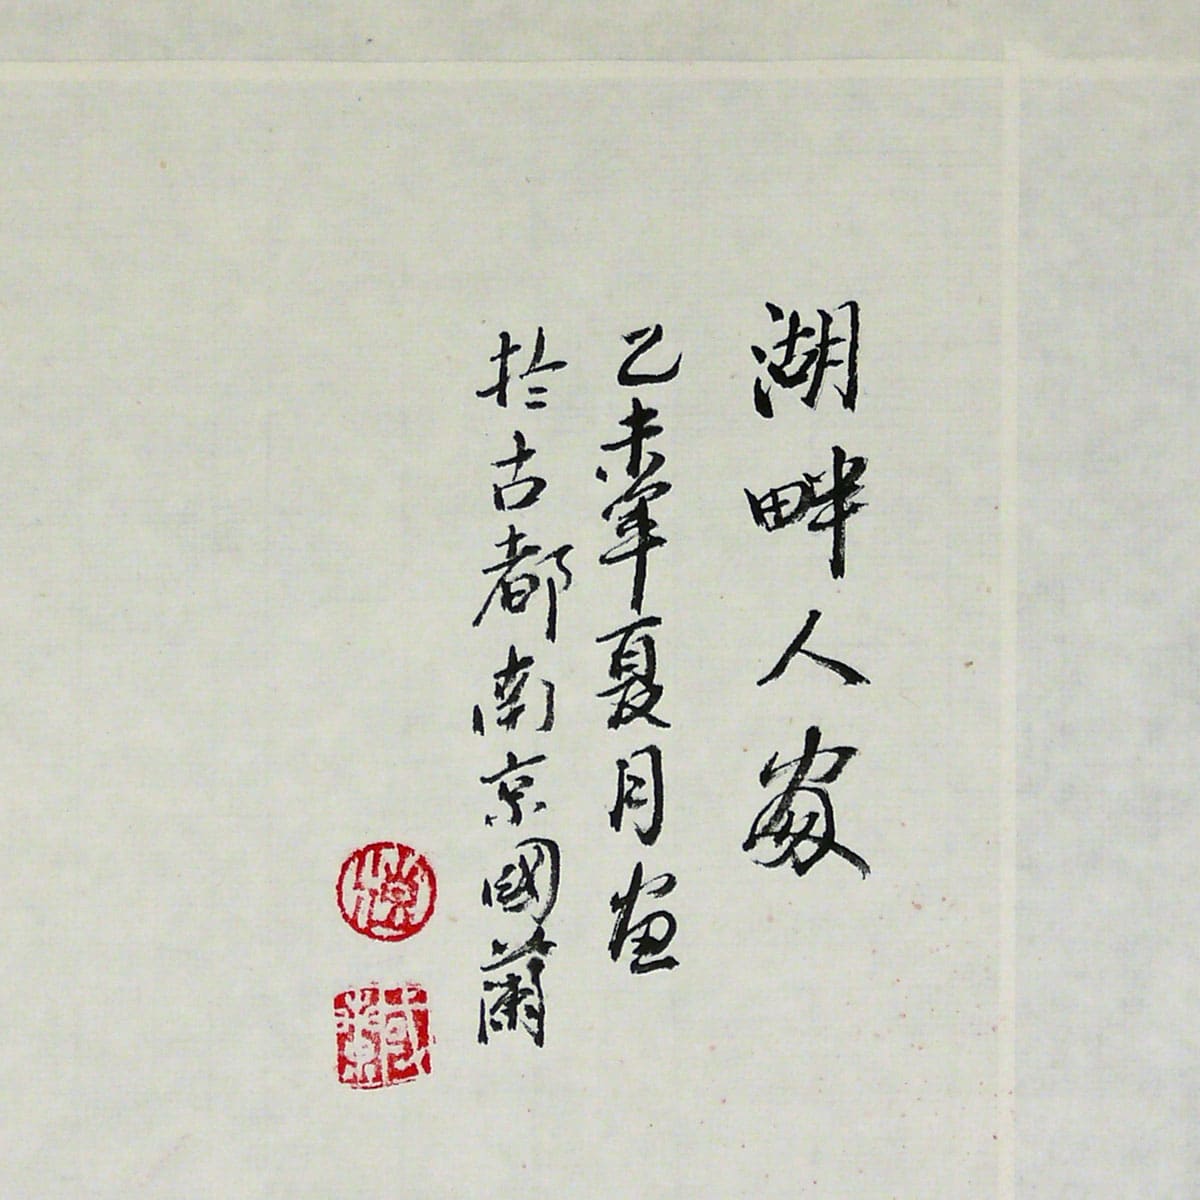 湖畔人家
乙未年夏月画
於古都南京國蘭